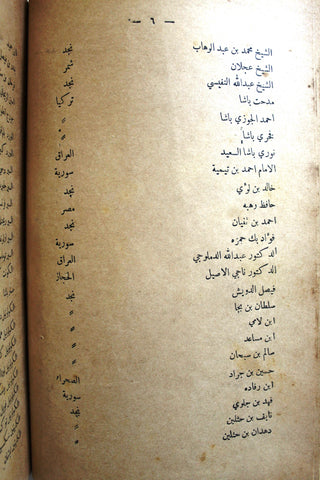 — ٦ —
الشيخ محمد بن عبد الوهاب نجد
الشيخ عجلان شمر
الشيخ عبدالله النفيسي نجد
مدحت باشا تركيا
احمد الجوزي باشا "
فخري باشا "
نوري باشا السعيد العراق
الامام احمد بن تيمية سورية
خالد بن لوي نجد
حافظ وهبه مصر
احمد بن ثنيان نجد
فؤاد بك حمزه سورية
الدكتور عبدالله الدملوجي العراق
الدكتور ناجي الاصيل الحجاز
فيصل الدويش نجد
سلطان بن بجا "
ابن لامي "
ابن مساعد "
سالم بن سبحان "
حسين بن جراد "
ابن رفاده الصحراء
فهد بن جلوي سورية
نايف بن حثلين نجد
دهدان بن حثلين "